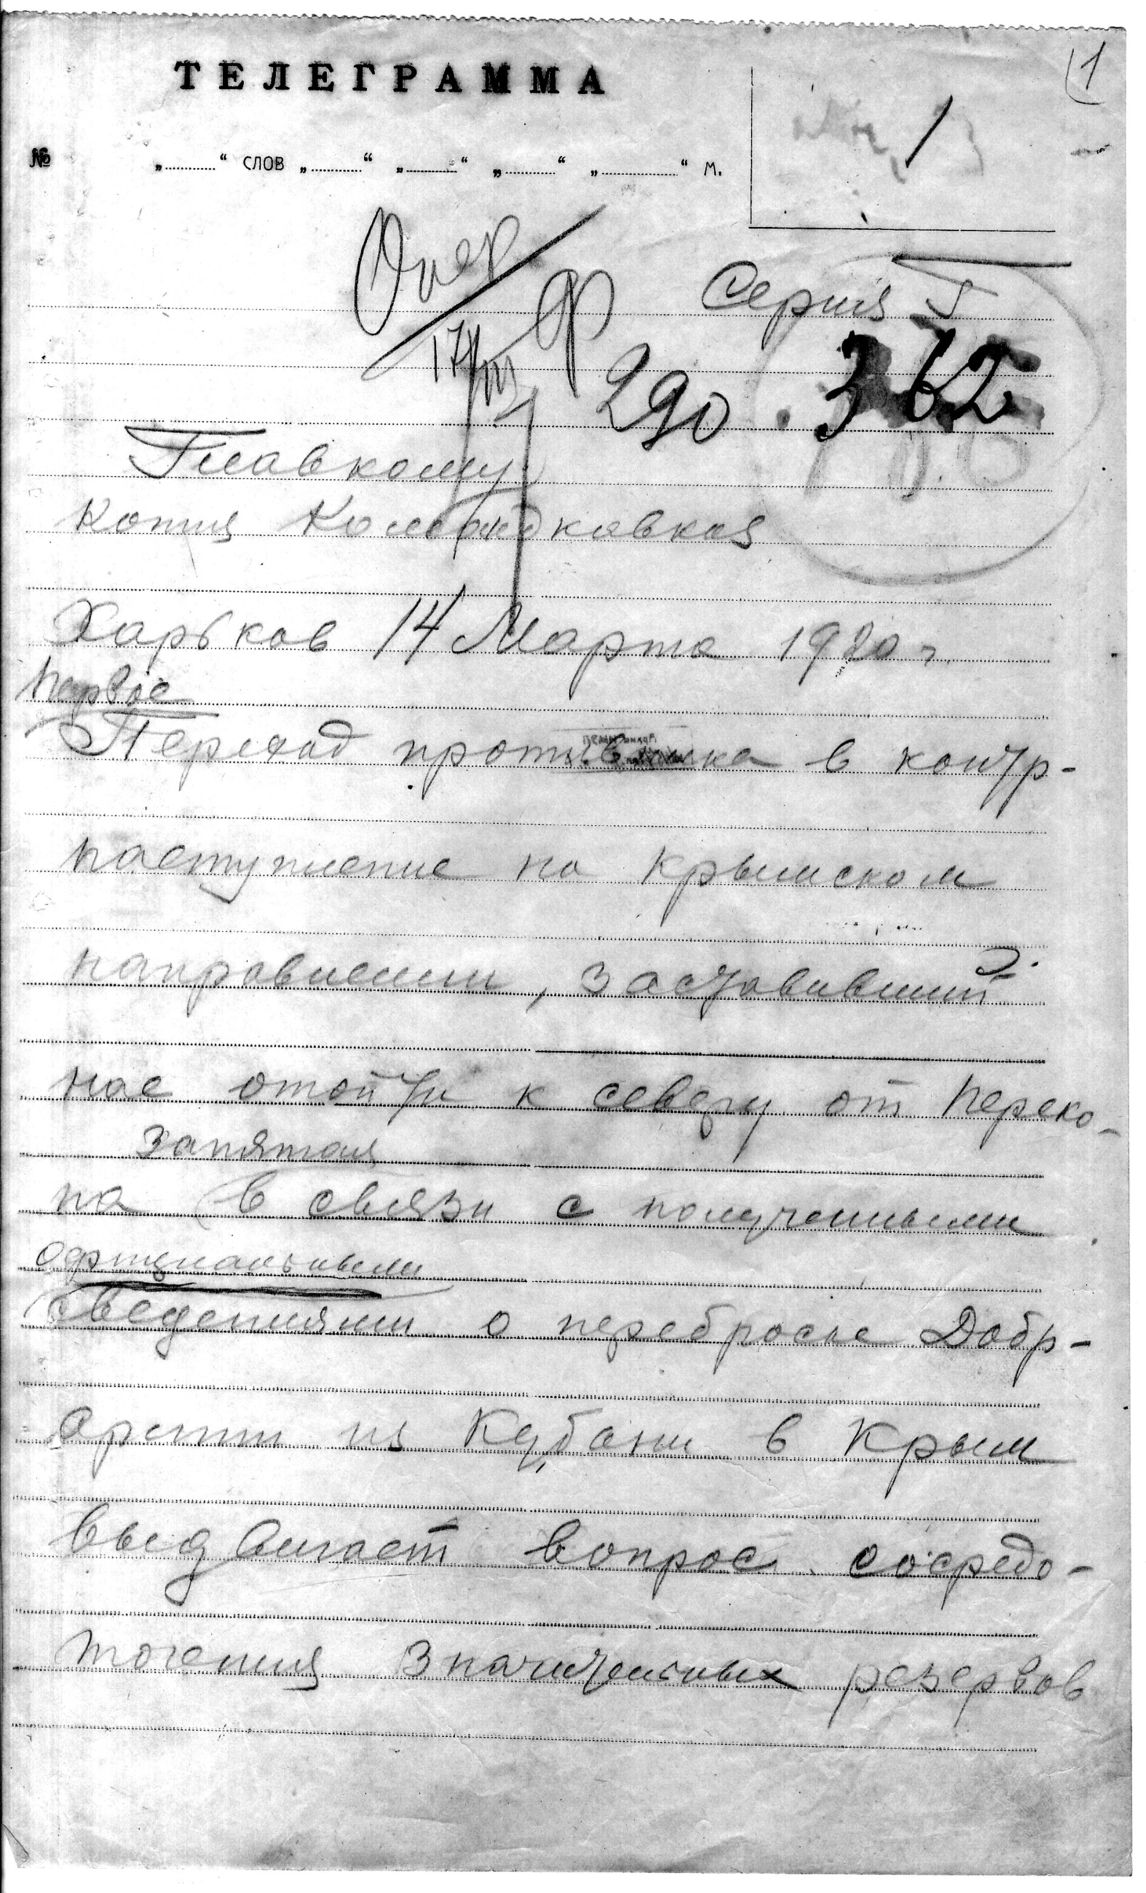 1
ТЕЛЕГРАММА
1
№ „ “ СЛОВ „ “ „ “ „ “ „ “ М.
Опер
Серия Г
17/III
290 362
Главкому
Копия Командкавказ
Харьков 14 Марта 1920 г.
Первое
Переход противника в контр-
наступление на Крымском
направлении, заставивший
нас отойти к северу от Переко-
запятая
па в связи с полученными
официальными
сведениями о переброске Добр-
армии из Кубани в Крым
выдвигает вопрос сосредо-
точения значительных резервов